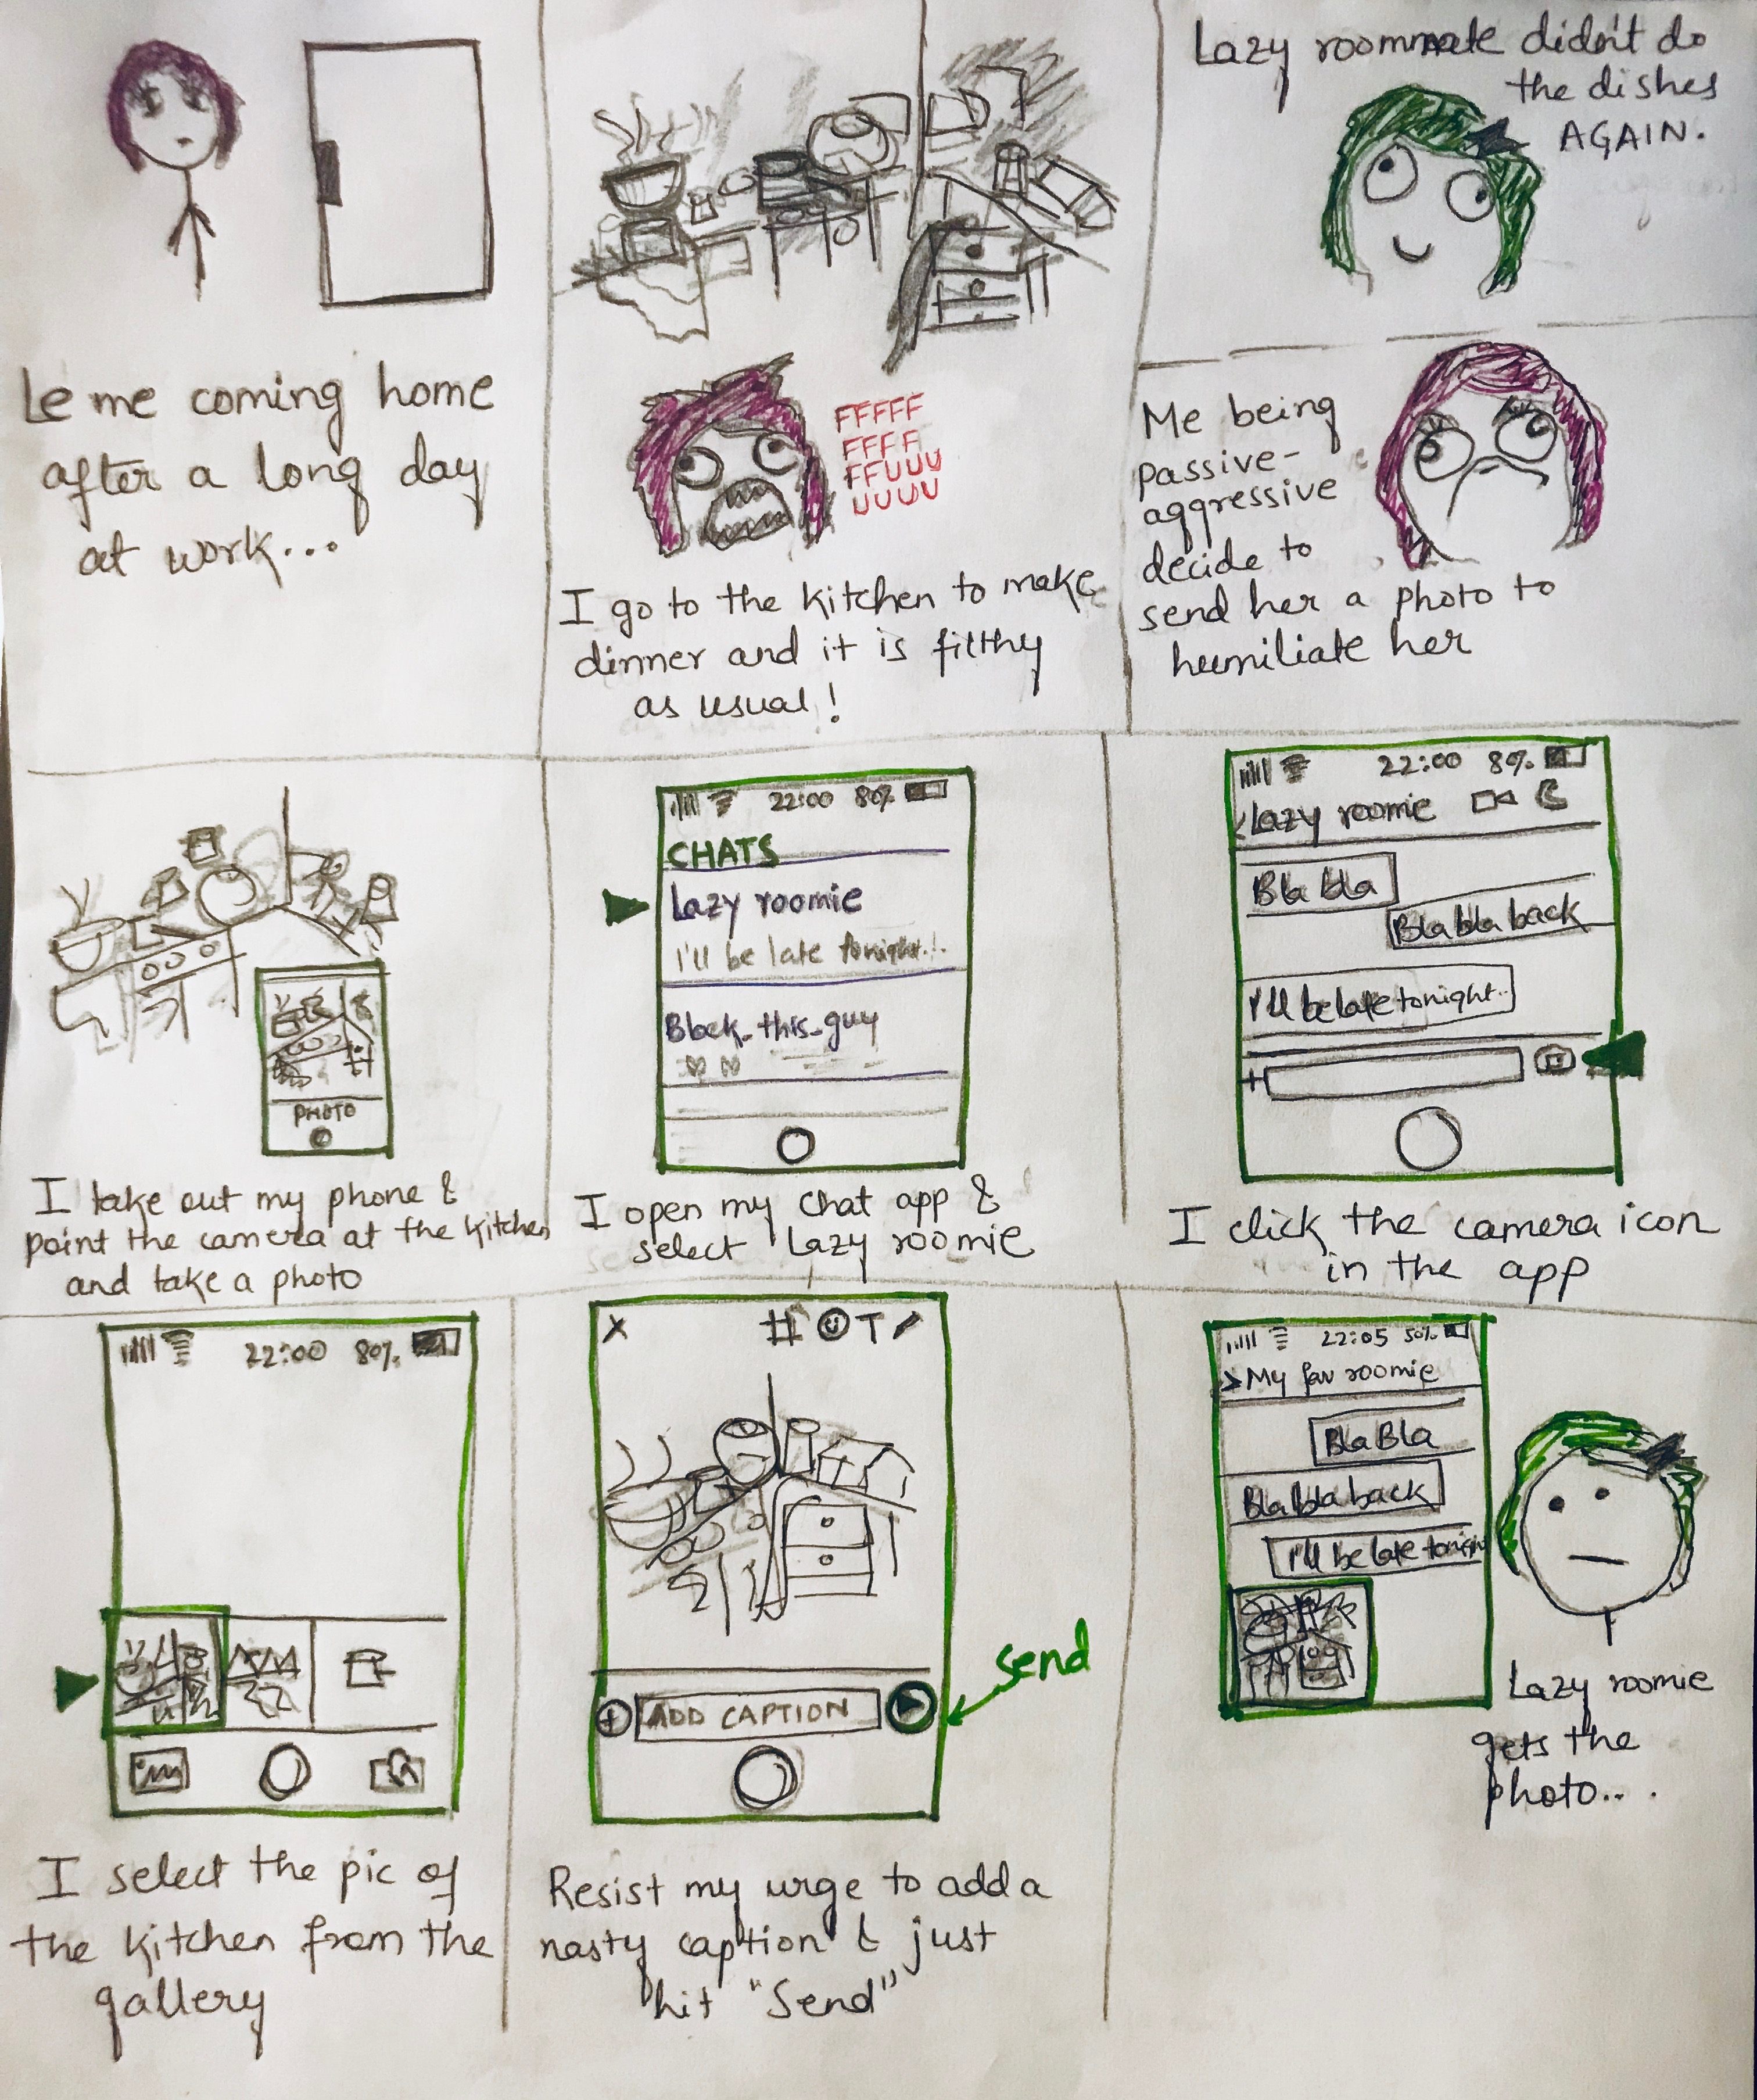 Le me coming home
after a long day
at work...
FFFFF
FFFF
FFUUU
UUUU
I go to the kitchen to make
dinner and it is filthy
as usual!
Lazy roommate didn't do
the dishes
AGAIN.
Me being
passive-
aggressive
decide to
send her a photo to
humiliate her
PHOTO
I take out my phone &
point the camera at the kitchen
and take a photo
22:00 80%
CHATS
Lazy roomie
I'll be late tonight..
Block_this_guy
I open my chat app &
select Lazy roomie
22:00 80%
<Lazy roomie
Bla bla
Bla bla back
I'll be late tonight..
+
I click the camera icon
in the app
22:00 80%
I select the pic of
the kitchen from the
gallery
X T
+ ADD CAPTION
send
Resist my urge to add a
nasty caption & just
hit "Send"
22:05 50%
>My fav roomie
Bla Bla
Bla bla back
I'll be late tonight
Lazy roomie
gets the
photo...